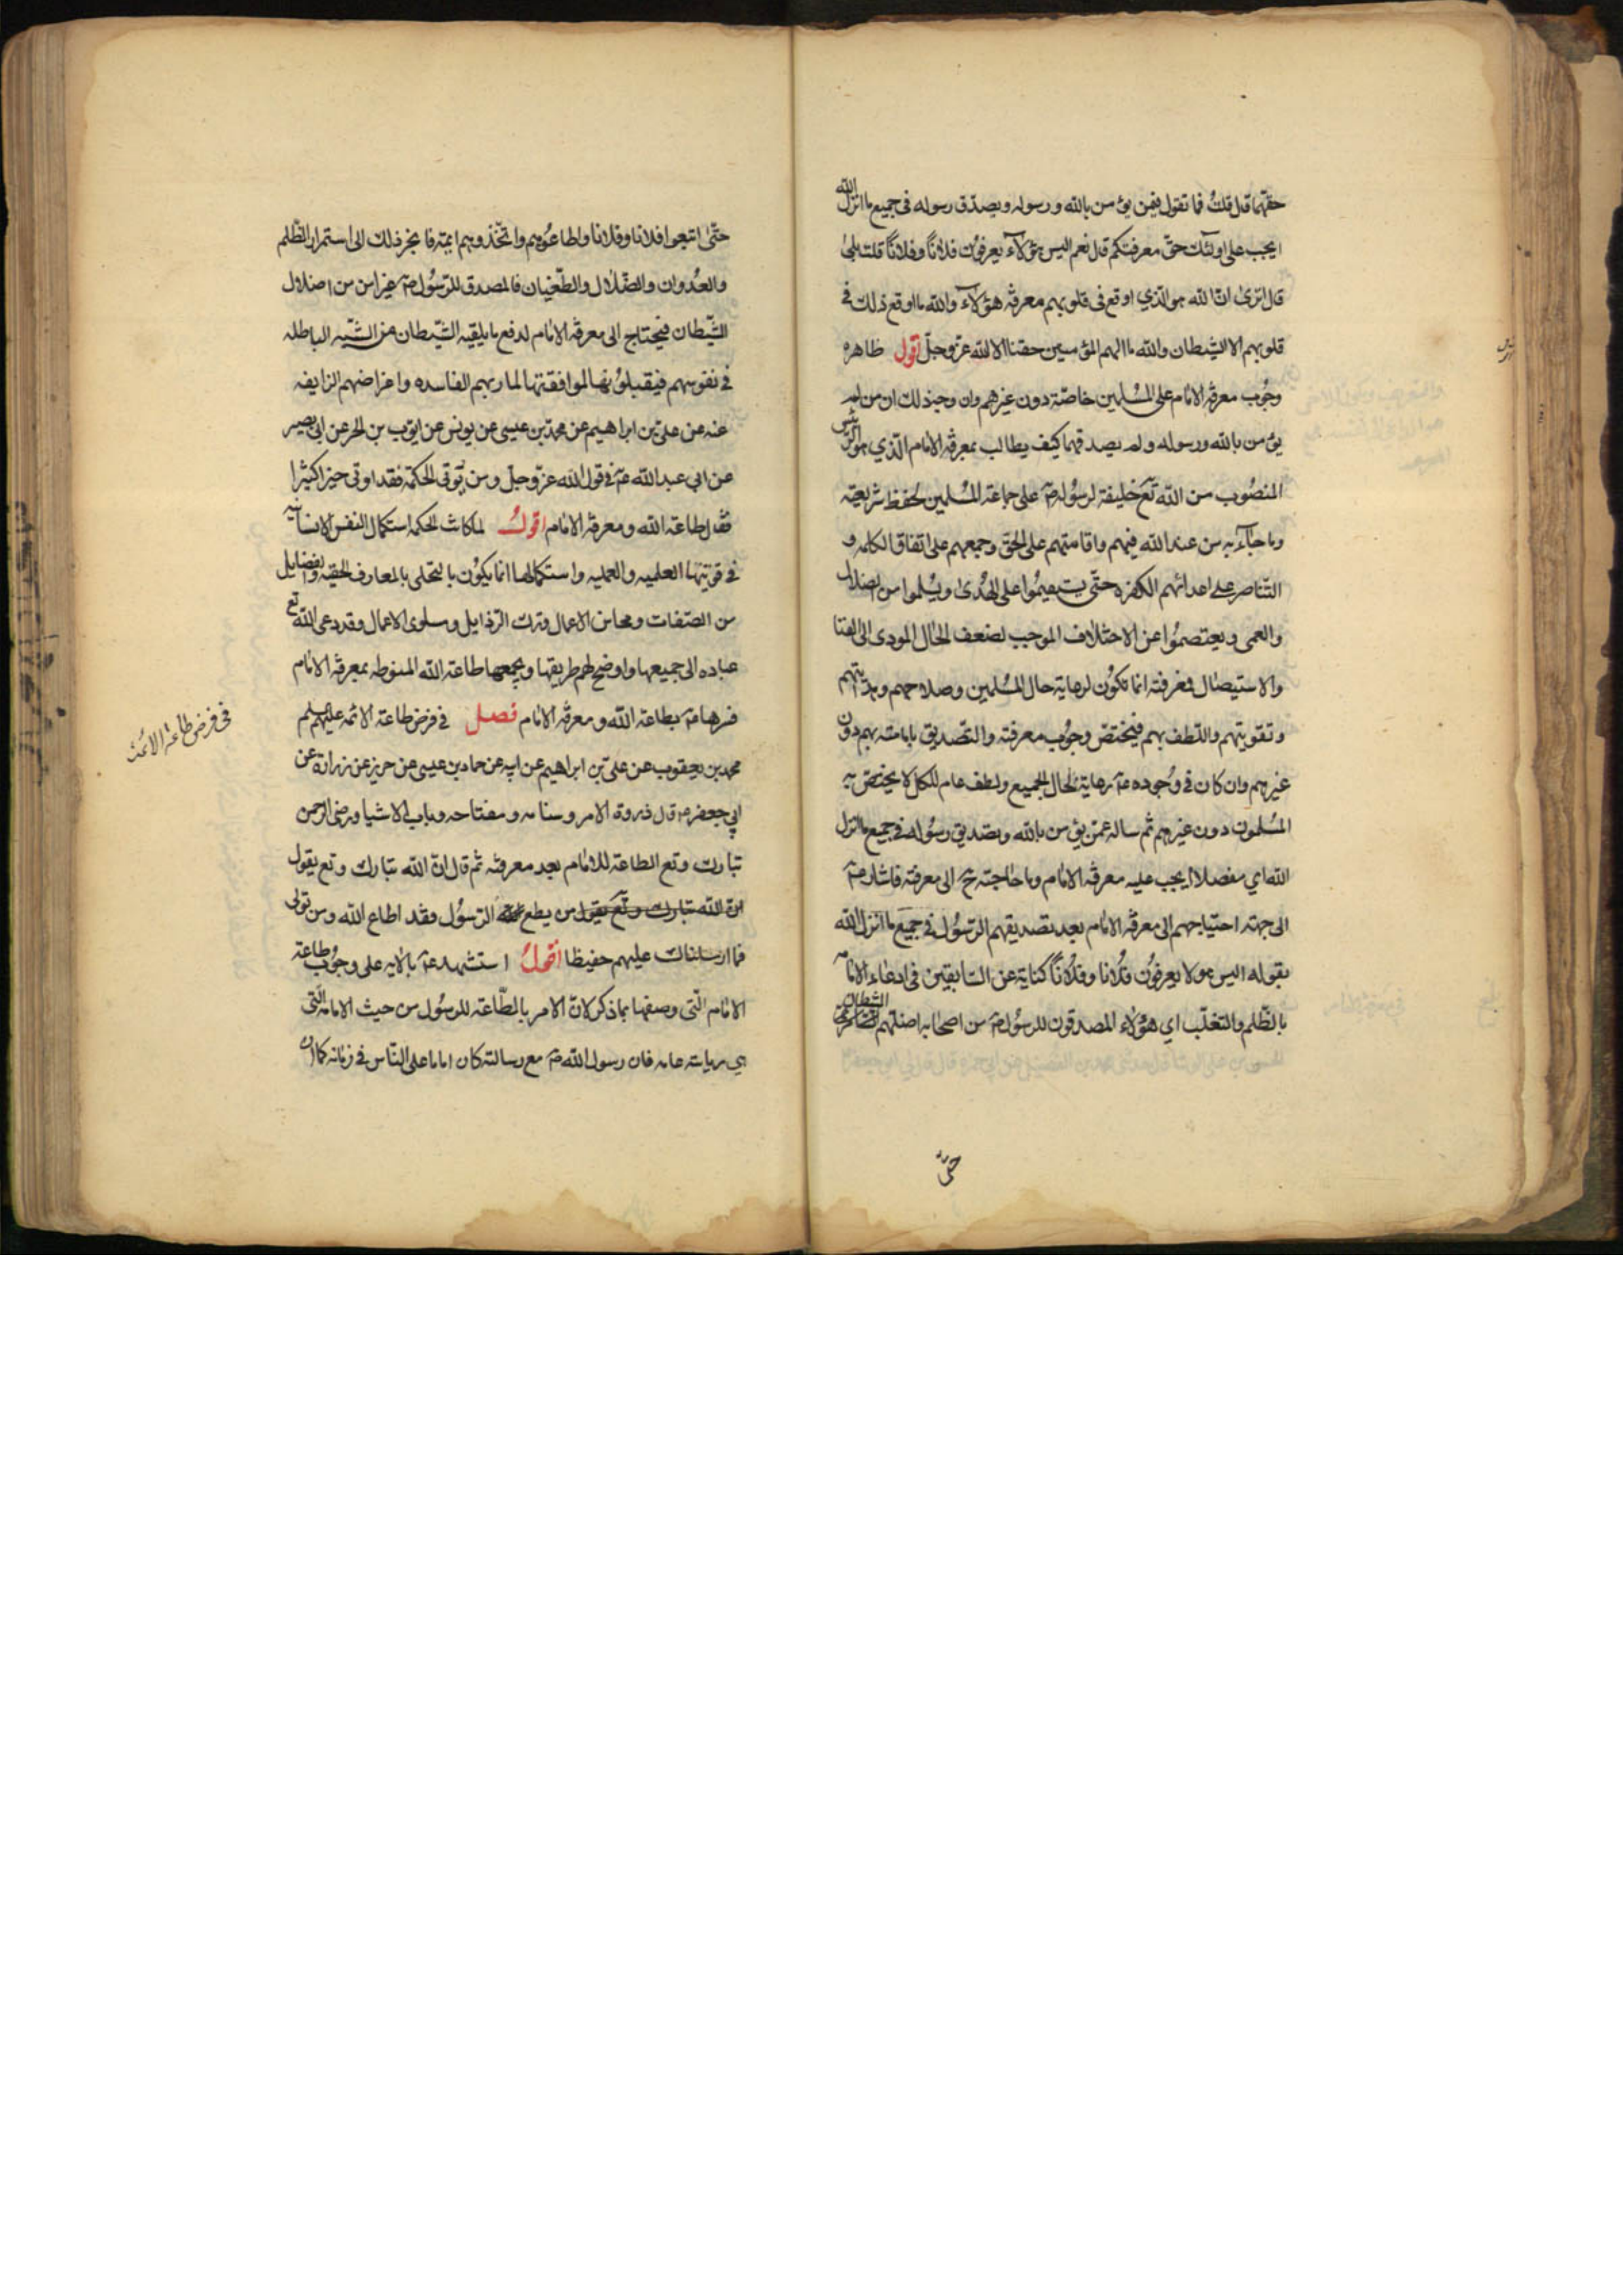 حقهما قال قلت فما تقول فيمن يؤمن بالله ورسوله ويصدق رسوله فى جميع ما انزل الله
ايجب على اولئك حق معرفتكم قال نعم اليس هؤلاء يعرفون فلانا وفلانا قلت بلى
قال اترى ان الله هو الذي اوقع فى قلوبهم معرفة هؤلاء والله ما اوقع ذلك فى
قلوبهم الا الشيطان والله ما الهم المؤمنين حقنا الا الله عز وجل اقول ظاهره
وجوب معرفة الامام على المسلمين خاصة دون غيرهم وان وجه ذلك ان من لم
يؤمن بالله ورسوله ولم يصدقهما كيف يطالب بمعرفة الامام الذي هو الرئيس
المنصوب من الله تع خليفة لرسوله ص على جماعة المسلمين لحفظ شريعته
وما جاء به من عند الله فيهم واقامتهم على الحق وجمعهم على اتفاق الكلمه و
التناصر على اعدائهم الكفره حتى يستقيموا على الهدى ويسلموا من الضلال
والعمى ويعتصموا عن الاختلاف الموجب لضعف الحال المودى الى الفنا
والاستيصال فمعرفته انما تكون لرعاية حال المسلمين وصلاحهم وهدايتهم
وتقويتهم واللطف بهم فيختص وجوب معرفته والتصديق بامامته بهم دون
غيرهم وان كان فى وجوده ع رعاية لحال الجميع ولطف عام للكل لا يختص به
المسلمون دون غيرهم ثم ساله عمن يؤمن بالله وبصديق رسوله فى جميع ما انزل
الله اي مفصلا ايجب عليه معرفة الامام وما حاجته ح الى معرفته فاشار ع
الى جهة احتياجهم الى معرفة الامام بعد تصديقهم الرسول فى جميع ما انزل الله
بقوله اليس هولا يعرفون فلانا وفلانا كناية عن السابقين فى ادعاء الامامه
بالظلم والتغلب اي هؤلاء المصدقون للرسول ص من اصحابه اضلهم الشيطان
حتى
حتى اتبعوا فلانا وفلانا واطاعوهم واتخذوهم ايمة فانجر ذلك الى استمرار الظلم
والعدوان والضلال والطغيان فالمصدق للرسول ص غير امن من اضلال
الشيطان فيحتاج الى معرفة الامام لدفع ما يلقيه الشيطان من الشبه الباطله
فى نفوسهم فيقبلونها لموافقتها لماربهم الفاسده واغراضهم الزايفه
عنه عن على بن ابراهيم عن محمد بن عيسى عن يونس عن ايوب بن الحر عن ابى بصير
عن ابي عبد الله ع فى قول الله عز وجل ومن يؤتى الحكمة فقد اوتى خيرا كثيرا
فقال طاعة الله ومعرفة الامام اقول لما كانت الحكمه استكمال النفس الانسانيه
فى قوتيها العلميه والعمليه واستكمالها انما يكون بالتحلى بالمعارف الحقيه والفضايل
من الصفات ومحاسن الاعمال وترك الرذايل وسلوى الاعمال وقد دعى الله تع
عباده الى جميعها واوضح لهم طريقها ويجمعها طاعة الله المنوطه بمعرفة الامام
فسرها ع بطاعة الله ومعرفة الامام فصل فى فرض طاعة الائمه عليهم سلم
محمد بن يعقوب عن على بن ابراهيم عن ابيه عن حماد بن عيسى عن حريز عن زرارة عن
ابي جعفر ع قال ذروة الامر وسنامه ومفتاحه وباب الاشيا ورضى الرحمن
تبارك وتع الطاعة للامام بعد معرفته ثم قال ان الله تبارك وتع يقول
ان الله تبارك وتع يقول من يطع الرسول فقد اطاع الله ومن تولى
فما ارسلناك عليهم حفيظا اقول استشهد ع بالايه على وجوب طاعة
الامام التى وصفها بما ذكر لان الامر بالطاعة للرسول من حيث الامامه التى
هي رياسة عامه فان رسول الله ص مع رسالته كان اماما على الناس فى زمانه كما ان
فى فرض طاعة الائمة